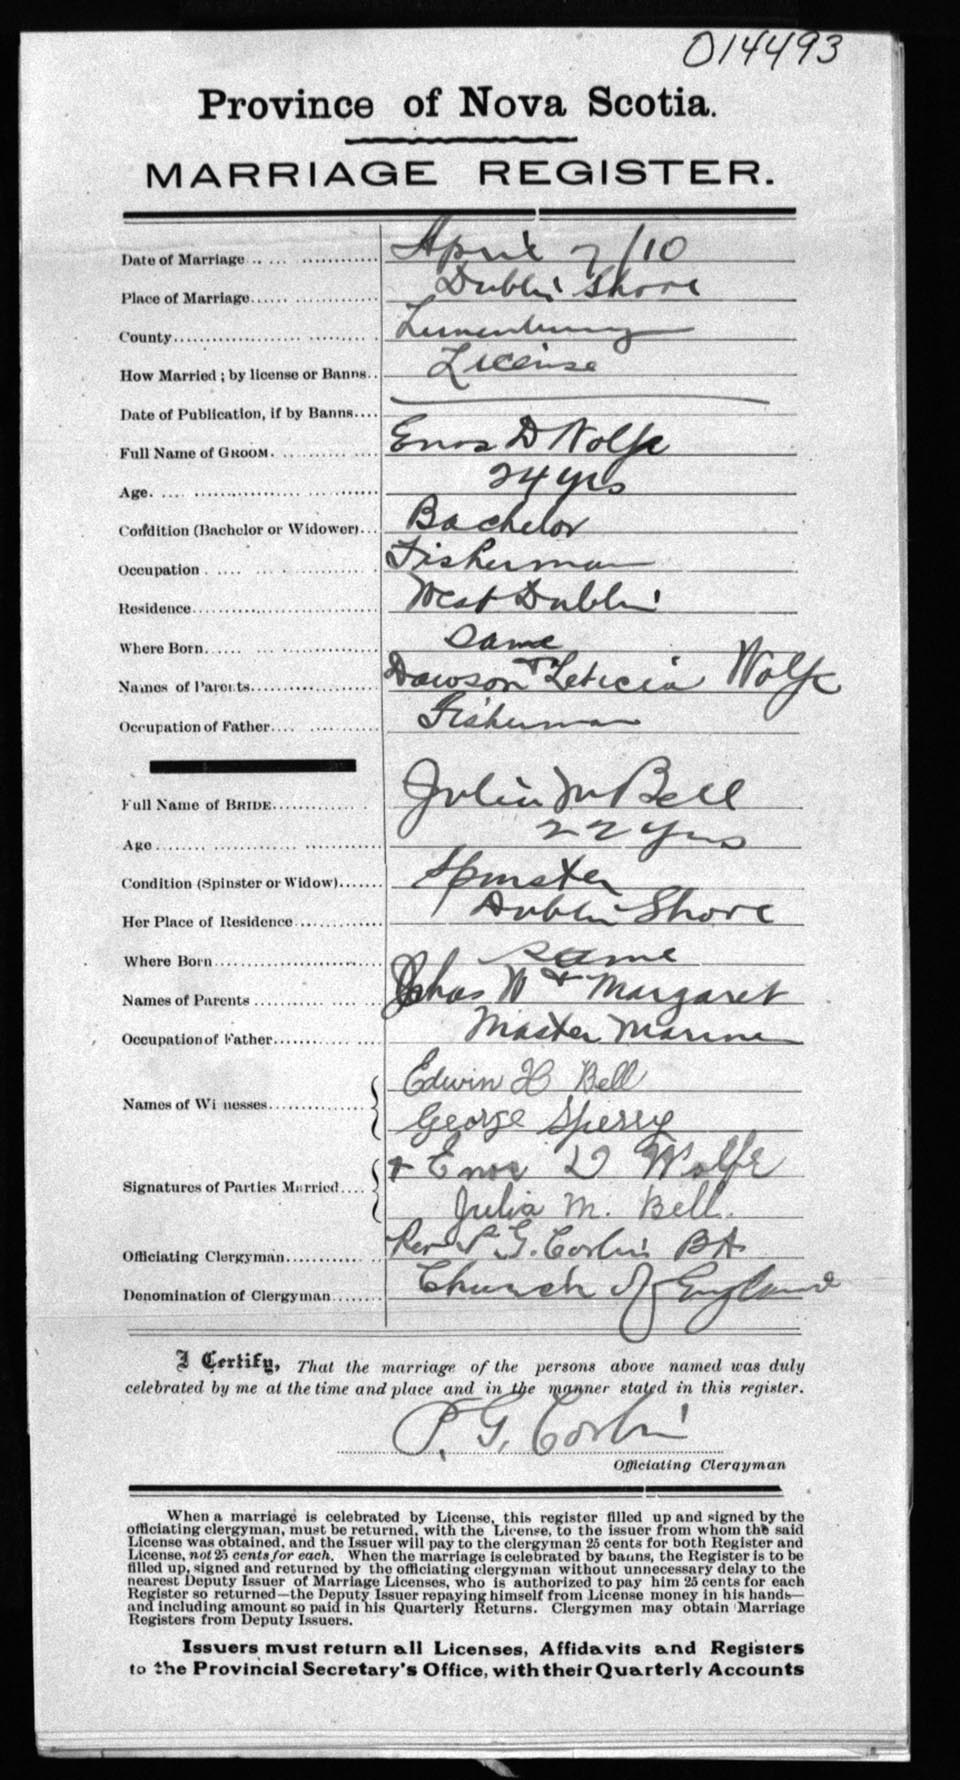 014493
Province of Nova Scotia.
MARRIAGE REGISTER.
Date of Marriage April 7/10
Place of Marriage Dublin Shore
County Lunenburg
How Married ; by license or Banns License
Date of Publication, if by Banns
Full Name of GROOM Enos D Wolfe
Age 24 yrs
Condition (Bachelor or Widower) Bachelor
Occupation Fisherman
Residence West Dublin
Where Born Same
Names of Parents Dawson + Leticia Wolfe
Occupation of Father Fisherman
Full Name of BRIDE Julia M Bell
Age 22 yrs
Condition (Spinster or Widow) Spinster
Her Place of Residence Dublin Shore
Where Born same
Names of Parents Chas W + Margaret
Occupation of Father Master Mariner
Names of Witnesses Edwin H Bell
George Sperry
Signatures of Parties Married + Enos D Wolfe
Julia M. Bell.
Officiating Clergyman Rev P. G. Corbin BA
Denomination of Clergyman Church of England
I Certify, That the marriage of the persons above named was duly
celebrated by me at the time and place and in the manner stated in this register.
P. G. Corbin
Officiating Clergyman
When a marriage is celebrated by License, this register filled up and signed by the
officiating clergyman, must be returned, with the License, to the issuer from whom the said
License was obtained, and the Issuer will pay to the clergyman 25 cents for both Register and
License, not 25 cents for each. When the marriage is celebrated by banns, the Register is to be
filled up, signed and returned by the officiating clergyman without unnecessary delay to the
nearest Deputy Issuer of Marriage Licenses, who is authorized to pay him 25 cents for each
Register so returned—the Deputy Issuer repaying himself from License money in his hands—
and including amount so paid in his Quarterly Returns. Clergymen may obtain Marriage
Registers from Deputy Issuers.
Issuers must return all Licenses, Affidavits and Registers
to the Provincial Secretary's Office, with their Quarterly Accounts